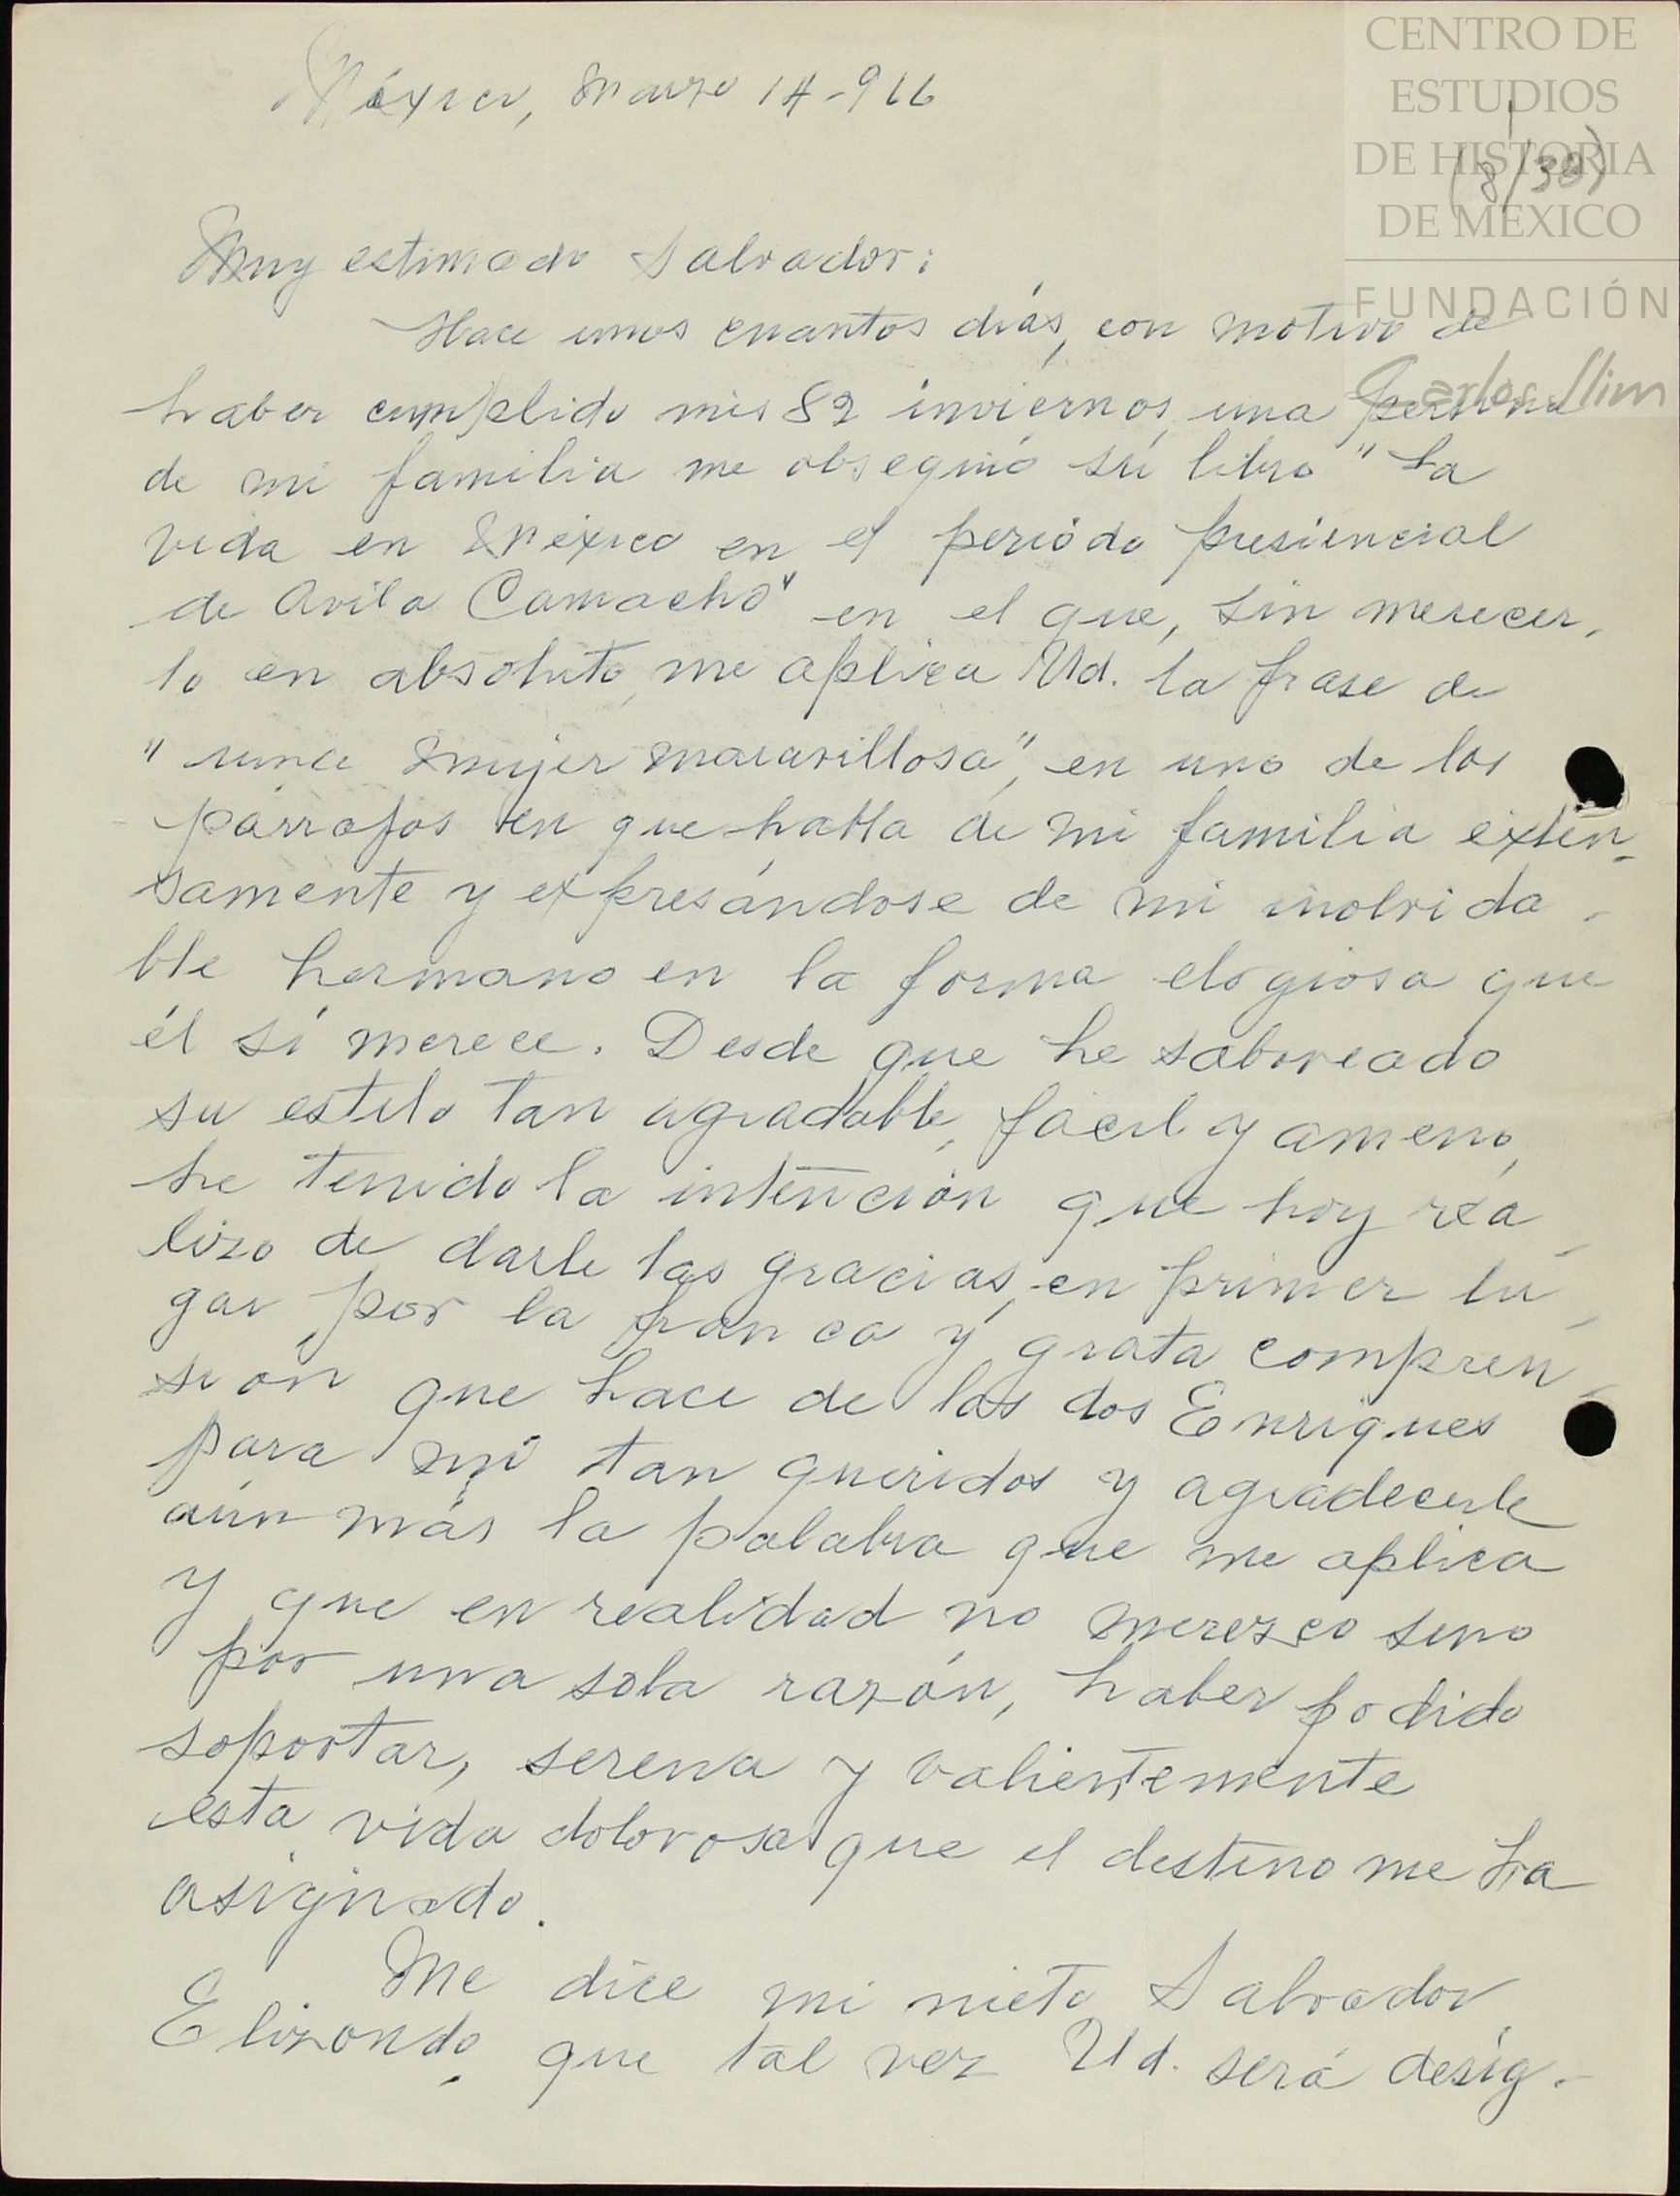 CENTRO DE
ESTUDIOS
DE HISTORIA
DE MÉXICO
FUNDACIÓN
Carlos Slim
(8/38)
México, Marzo 14-966
Muy estimado Salvador:
Hace unos cuantos días, con motivo de
haber cumplido mis 82 inviernos, una persona
de mi familia me obsequió su libro "La
vida en México en el período presiencial
de Avila Camacho" en el que, sin merecer,
lo en absoluto, me aplica Ud. la frase de
" mujer maravillosa", en uno de los
párrafos en que habla de mi familia exten-
samente y expresándose de mi inolvida-
ble hermano en la forma elogiosa que
él sí merece. Desde que he saboreado
su estilo tan agradable, fácil y ameno,
he tenido la intención que hoy rea-
lizo de darle las gracias, en primer lu-
gar por la franca y grata compren-
sión que hace de los dos Enriques
para mí tan queridos y agradecerle
aún más la palabra que me aplica
y que en realidad no merezco sino
por una sola razón, haber podido
soportar, serena y valientemente
esta vida dolorosa que el destino me ha
asignado.
Me dice mi nieto Salvador
Elizondo, que tal vez Ud. será desig-